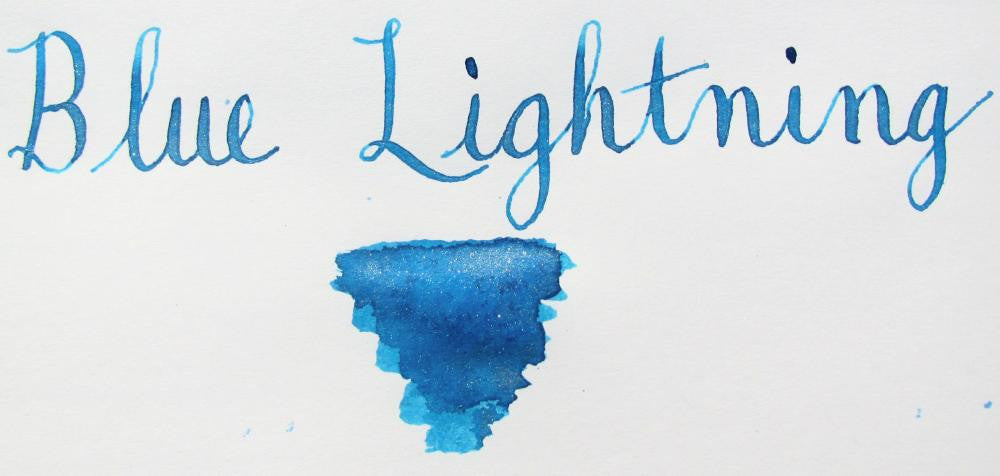 Blue Lightning